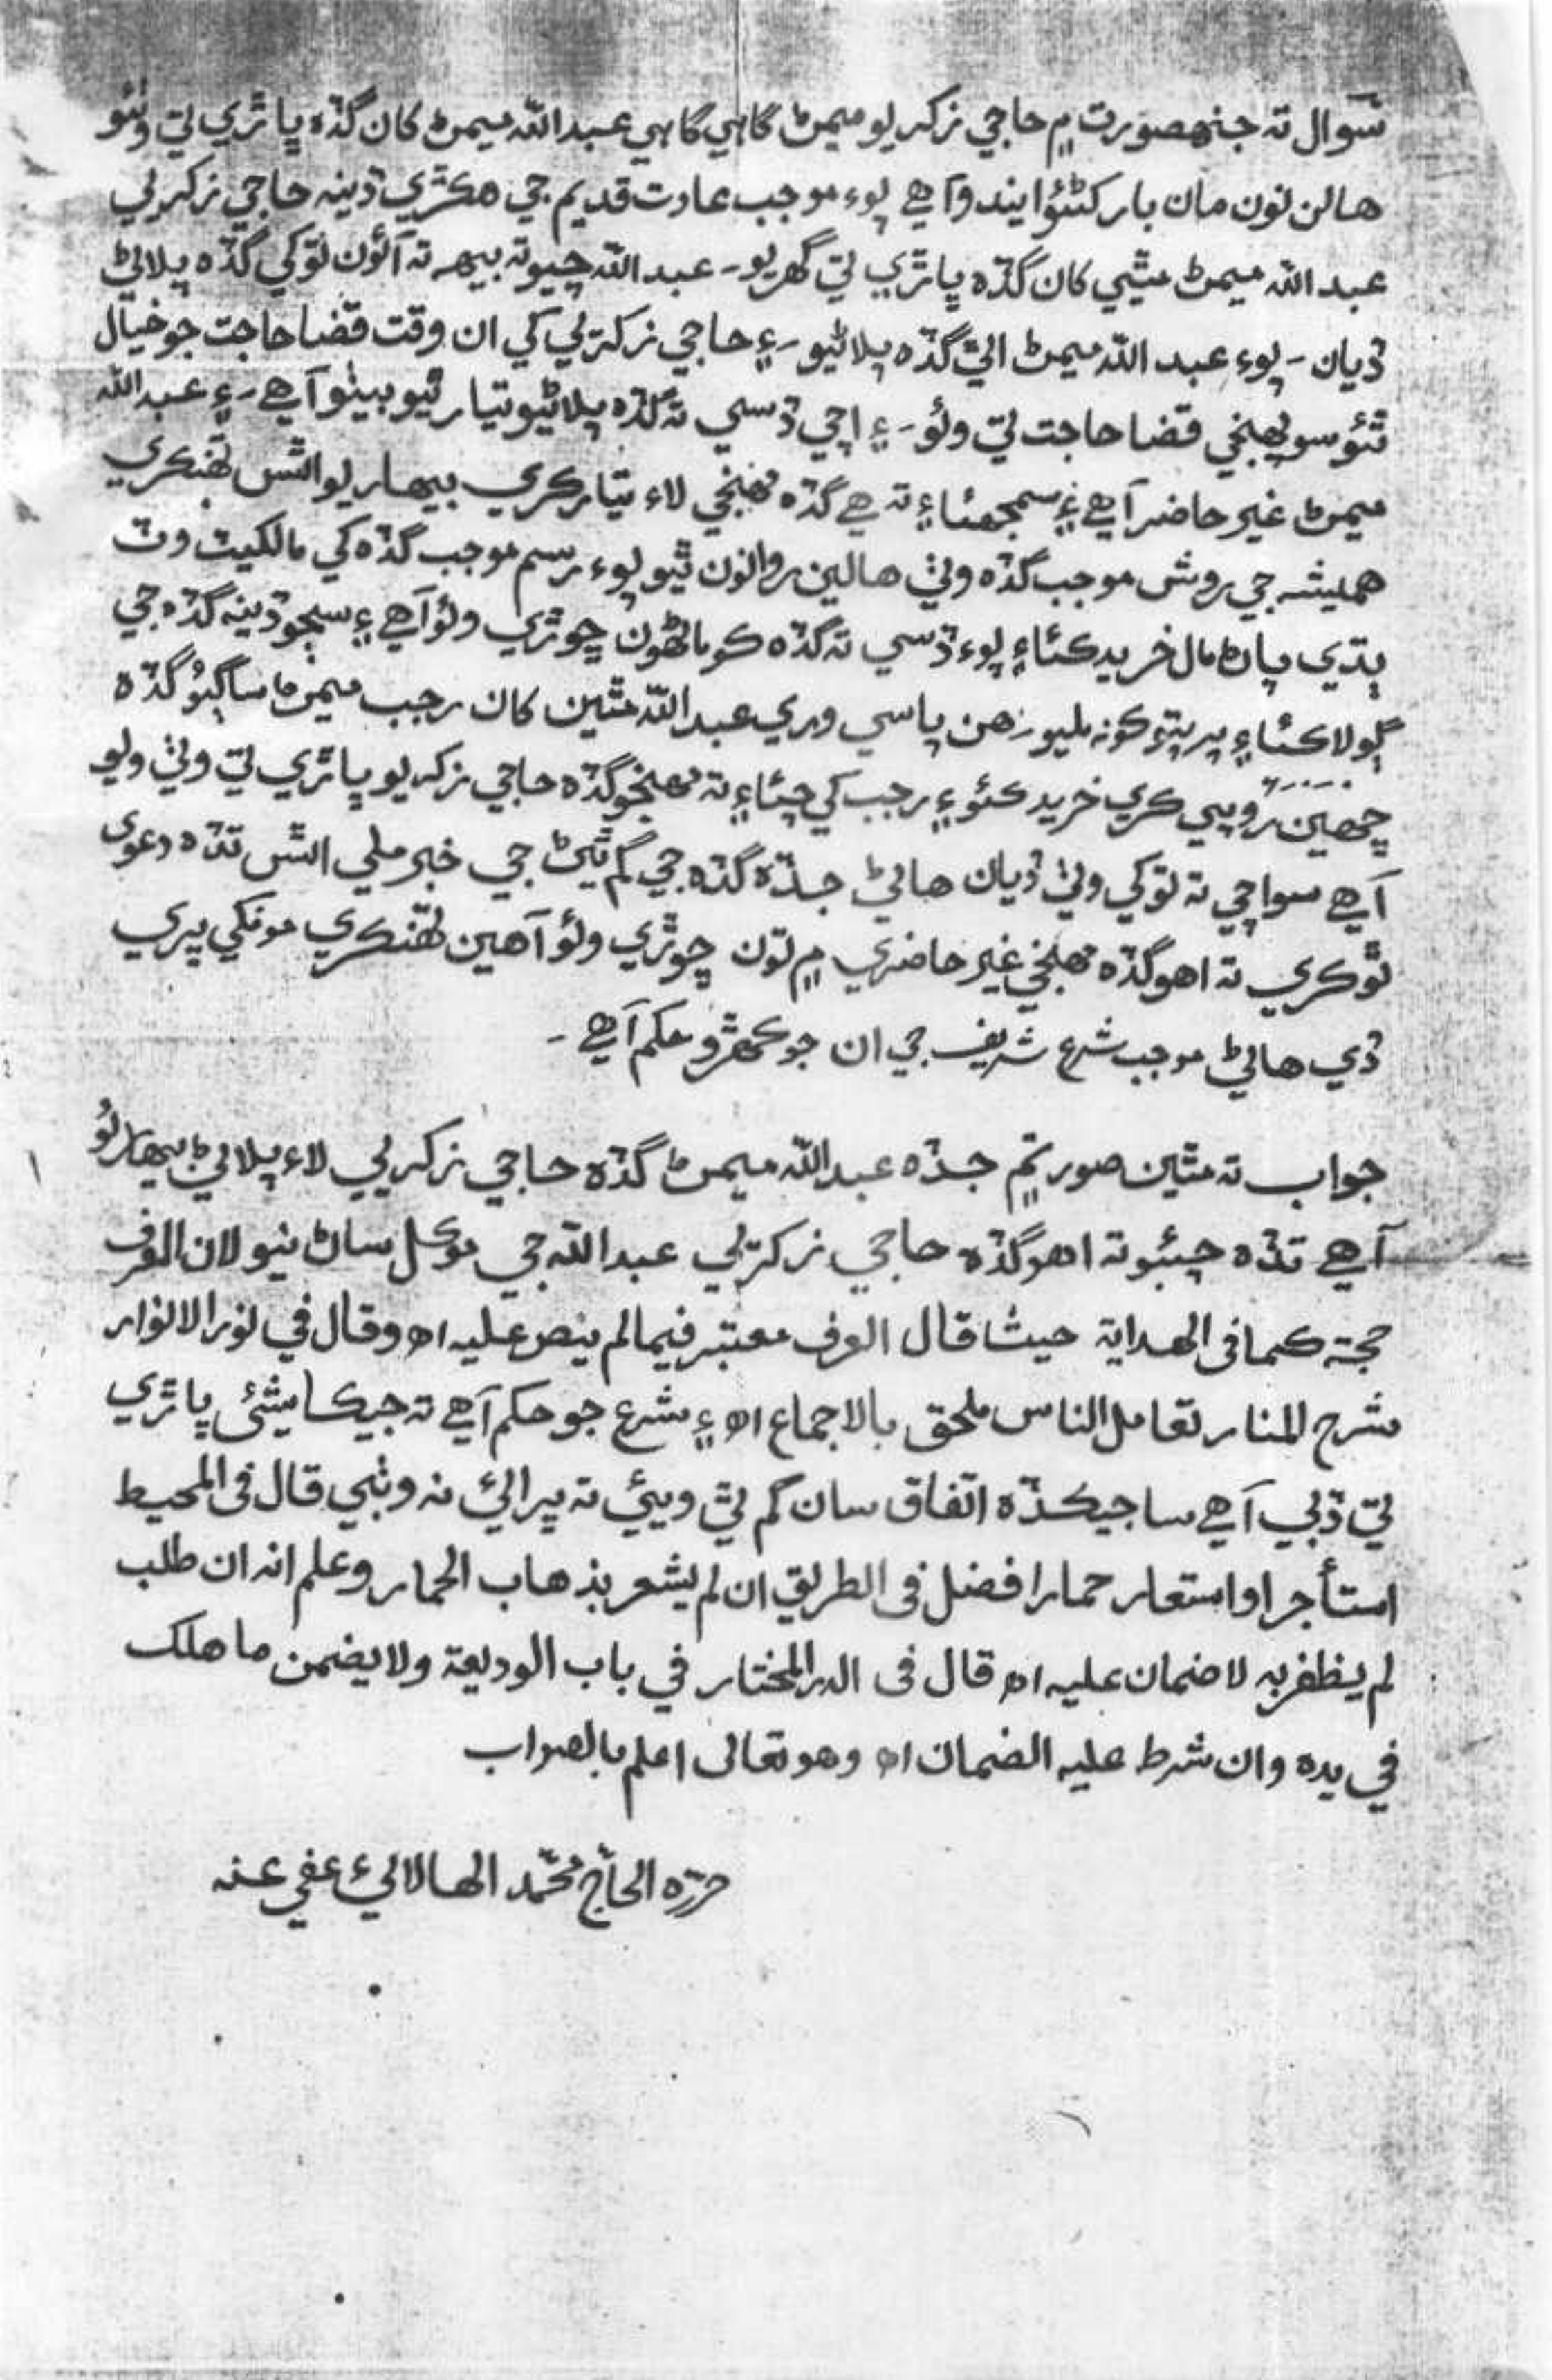 سوال ته جنهصورت ۾ حاجي زڪريو ميمڻ گاهي گاهي عبدالله ميمڻ کان گڏھ ڀاڙي تي وٺئو
هالن نون مان بار کڻئو ايندو آهي پوءِ موجب عادت قديم جي هڪڙي ڏينه حاجي زڪريي
عبدالله ميمڻ مٿيي کان گڏھ ڀاڙي تي گهريو ـ عبدالله چيو ته بيھ ته آئون توکي گڏھ پلاڻي
ڏيان ـ پوءِ عبدالله ميمڻ اٿي گڏھ پلاڻيو ـ ۽ حاجي زڪريي کي ان وقت قضا حاجت جو خيال
ٿئو سو پهنجي قضا حاجت تي وئو ـ ۽ اچي ڏسي ته گڏھ پلاڻيو تيار ٿيو بيٺو آهي ـ ۽ عبدالله
ميمڻ غير حاضر آهي ۽ سمجهئاءِ ته هي گڏھ مهنجي لاءِ تيار ڪري بيهاريو اٿس تهنڪري
هميشہ جي روش موجب گڏھ وٺي هالين روانون ٿيو پوءِ رسم موجب گڏھ کي مالڪيٽ وٽ
ٻڌي پاڻ مال خريد ڪئاءِ پوءِ ڏسي ته گڏھ ڪو ماڻهون ڇوڙي وئو آهي ۽ سڄو ڏينه گڏھ جي
ڳولا ڪئاءِ پر پتو ڪونه مليو ـ هن پاسي وري عبدالله مٿين کان رجب ميمڻ ساڳيو گڏھ
ڇهين روپيي ڪري خريد ڪئو ۽ رجب کي چئاءِ ته مهنجو گڏھ حاجي زڪريو ڀاڙي تي وٺي ويو
آهي سو اچي ته توکي وٺي ڏيان هاڻي جڏھ گڏھ جي گم ٿيڻ جي خبر ملي اٿس تڏھ دعوى
ٿو ڪري ته اهو گڏھ مهنجي غير حاضري ۾ تون ڇوڙي وئو آهين تهنڪري مونکي ڀري
ڏي هاڻي موجب شرع شريف جي ان جو ڪهڙو حڪم آهي ـ
جواب ته مٿين صورتم جڏھ عبدالله ميمڻ گڏھ حاجي زڪريي لاءِ پلاڻي بيهاريو
آهي تڏھ چئبو ته اهو گڏھ حاجي زڪريي عبدالله جي موڪل ساڻ نيو لان العرف
حجة كما فى الهداية حيث قال العرف معتبر فيما لم ينص عليه اھ وقال في نور الانوار
شرح المنار تعامل الناس ملحق بالاجماع اھ ۽ شرع جو حڪم آهي ته جيڪا شئي ڀاڙي
تي ڏني آهي سا جيڪڏھ اتفاق سان گم ٿي ويئي ته ڀرائي نه وٺبي قال فى المحيط
استأجر او استعار حمارا فضل فى الطريق ان لم يشعر بذهاب الحمار وعلم انه ان طلب
لم يظفر به لا ضمان عليه اھ قال فى الدر المختار في باب الوديعة ولا يضمن ما هلك
في يده وان شرط عليه الضمان اھ وهو تعالى اعلم بالصواب
حرره الحاج محمد الهالائي عفي عنه